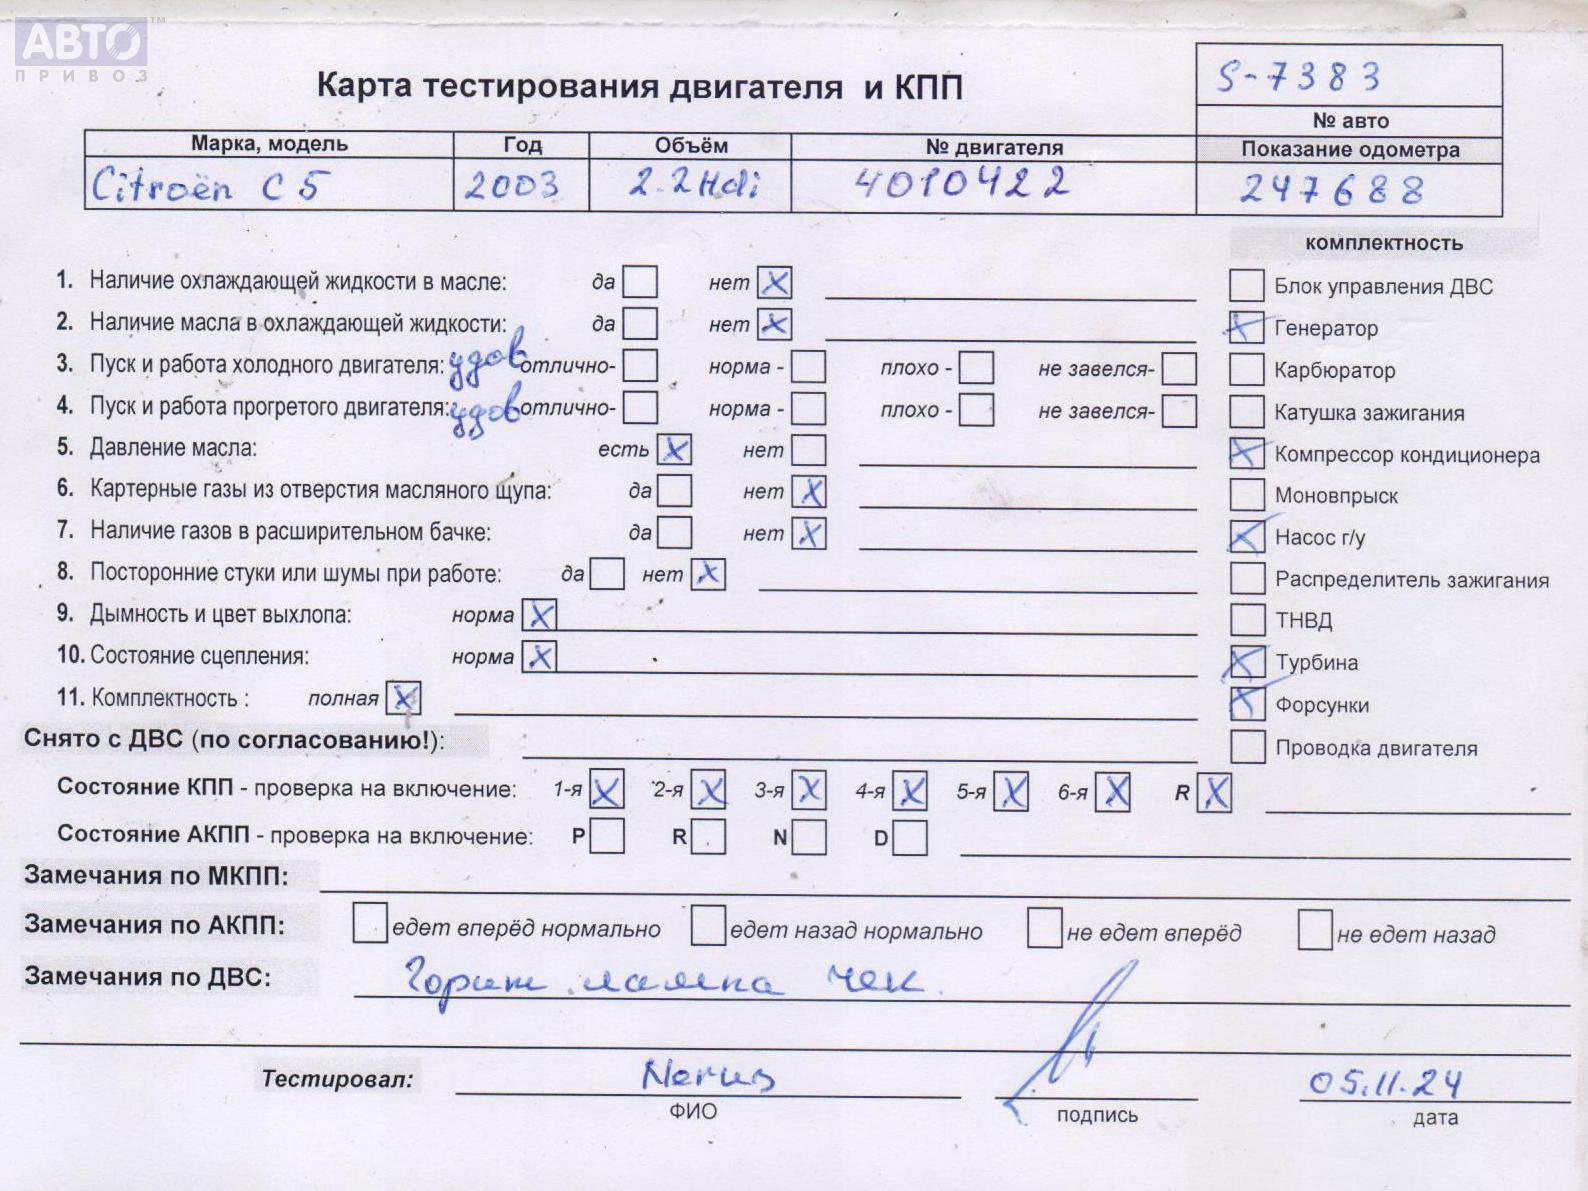 АВТО™
ПРИВОЗ
S-7383
Карта тестирования двигателя и КПП
№ авто
Марка, модель Год Объём № двигателя Показание одометра
Citroën C5 2003 2.2Hdi 4010422 247688
комплектность
1. Наличие охлаждающей жидкости в масле: да нет X Блок управления ДВС
2. Наличие масла в охлаждающей жидкости: да нет X X Генератор
3. Пуск и работа холодного двигателя: удов отлично- норма - плохо - не завелся- Карбюратор
4. Пуск и работа прогретого двигателя: удов отлично- норма - плохо - не завелся- Катушка зажигания
5. Давление масла: есть X нет X Компрессор кондиционера
6. Картерные газы из отверстия масляного щупа: да нет X Моновпрыск
7. Наличие газов в расширительном бачке: да нет X X Насос г/у
8. Посторонние стуки или шумы при работе: да нет X Распределитель зажигания
9. Дымность и цвет выхлопа: норма X ТНВД
10. Состояние сцепления: норма X X Турбина
11. Комплектность : полная X X Форсунки
Снято с ДВС (по согласованию!): Проводка двигателя
Состояние КПП - проверка на включение: 1-я X 2-я X 3-я X 4-я X 5-я X 6-я X R X
Состояние АКПП - проверка на включение: P R N D
Замечания по МКПП:
Замечания по АКПП: едет вперёд нормально едет назад нормально не едет вперёд не едет назад
Замечания по ДВС: Горит лампа чек
Тестировал: 05.11.24
ФИО подпись дата